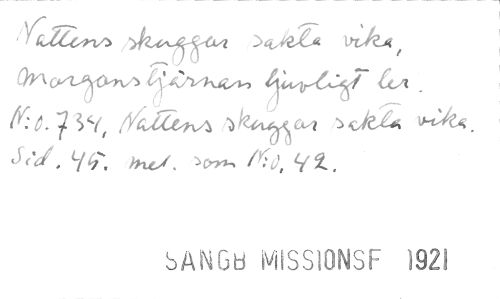 Nattens skuggor sakta vika,
Morgonstjärnan ljuvligt ler.
N:o. 734, Nattens skuggor sakta vika.
Sid. 45. mel. som N:o. 42.
SÅNGB MISSIONSF 1921